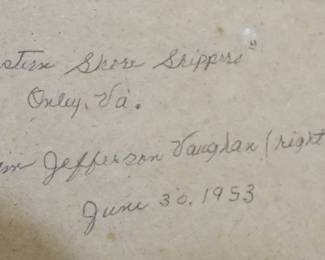 stern Shore Skippers"
Onley, Va.
am Jefferson Vaughan (right
June 30, 1953